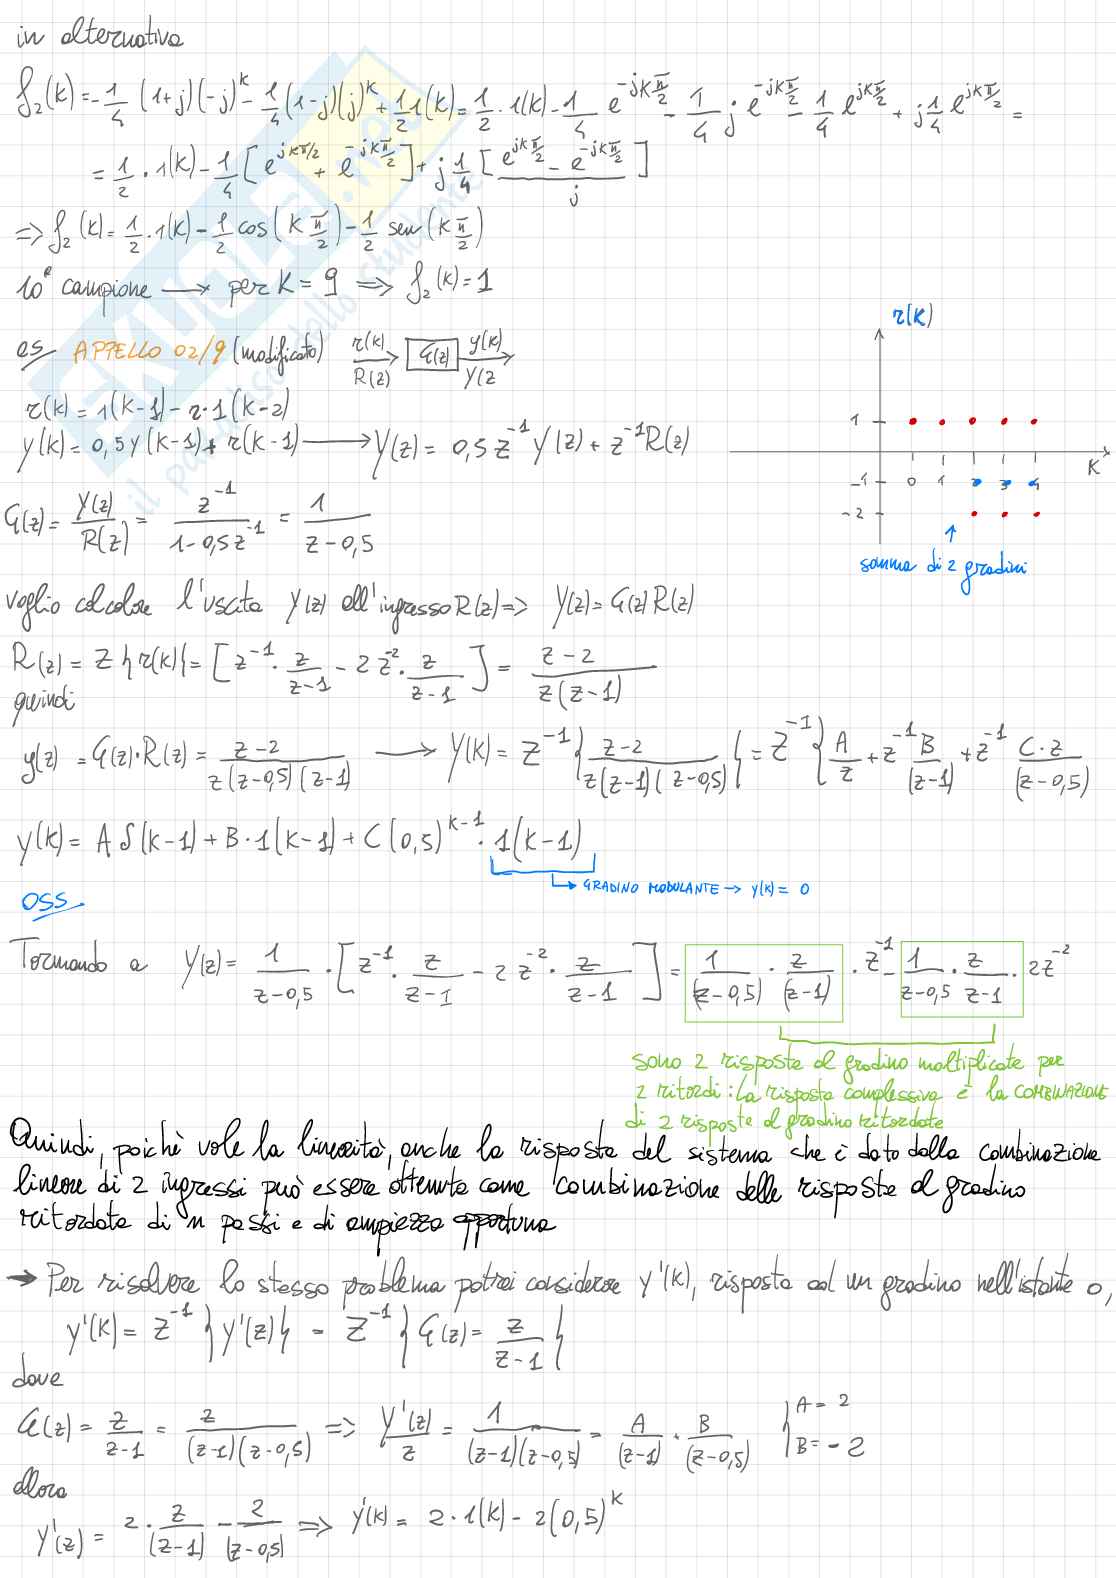 in alternativa
f₂(k) = -1/4 (1+j)(-j)^k - 1/4 (1-j)(j)^k + 1/2 1(k) = 1/2 · 1(k) - 1/4 e^(-jkπ/2) - 1/4 j e^(-jkπ/2) - 1/4 e^(jkπ/2) + j 1/4 e^(jkπ/2) =
= 1/2 · 1(k) - 1/4 [e^(jkπ/2) + e^(-jkπ/2)] + j 1/4 [(e^(jkπ/2) - e^(-jkπ/2))/j]
⇒ f₂(k) = 1/2 · 1(k) - 1/2 cos(k π/2) - 1/2 sen(k π/2)
10° campione → per k = 9 ⇒ f₂(k) = 1
es APPELLO 02/9 (modificato) r(k) R(z) → G(z) → y(k) Y(z
r(k) = 1(k-1) - 2·1(k-2)
y(k) = 0,5y(k-1) + r(k-1) → Y(z) = 0,5 z^-1 Y(z) + z^-1 R(z)
G(z) = Y(z)/R(z) = z^-1/(1-0,5z^-1) = 1/(z-0,5)
r(k)
1
K
-1 0 1 2 3 4
-2
somma di 2 gradini
voglio calcolare l'uscita Y(z) all'ingresso R(z) ⇒ Y(z) = G(z) R(z)
R(z) = Z{r(k)} = [z^-1 · z/(z-1) - 2 z^-2 · z/(z-1)] = (z-2)/(z(z-1))
quindi
y(z) = G(z)·R(z) = (z-2)/(z(z-0,5)(z-1)) → Y(k) = Z^-1{(z-2)/(z(z-1)(z-0,5))} = Z^-1{A/z + z^-1 B/(z-1) + z^-1 C·z/(z-0,5)
y(k) = A δ(k-1) + B·1(k-1) + C(0,5)^(k-1) · 1(k-1)
GRADINO MODULANTE → y(k) = 0
OSS
Tornando a Y(z) = 1/(z-0,5) · [z^-1 · z/(z-1) - 2 z^-2 · z/(z-1)] = 1/(z-0,5) · z/(z-1) · z^-1 - 1/(z-0,5) · z/(z-1) · 2z^-2
sono 2 risposte al gradino moltiplicate per
2 ritardi: la risposta complessiva è la COMBINAZIONE
di 2 risposte al gradino ritardate
Quindi, poichè vale la linearità, anche la risposta del sistema che è dato dalla combinazione
lineare di 2 ingressi può essere ottenuta come combinazione delle risposte al gradino
ritardata di n passi e di ampiezza opportuna
→ Per risolvere lo stesso problema potrei considerare y'(k), risposta ad un gradino nell'istante 0,
y'(k) = Z^-1{y'(z)} = Z^-1{G(z) = z/(z-1)}
dove
G(z) = z/(z-1) = z/((z-1)(z-0,5)) ⇒ Y'(z)/z = 1/((z-1)(z-0,5)) = A/(z-1) + B/(z-0,5) { A = 2
B = -2
allora
y'(z) = 2 · z/(z-1) - 2/(z-0,5) ⇒ y'(k) = 2·1(k) - 2(0,5)^k